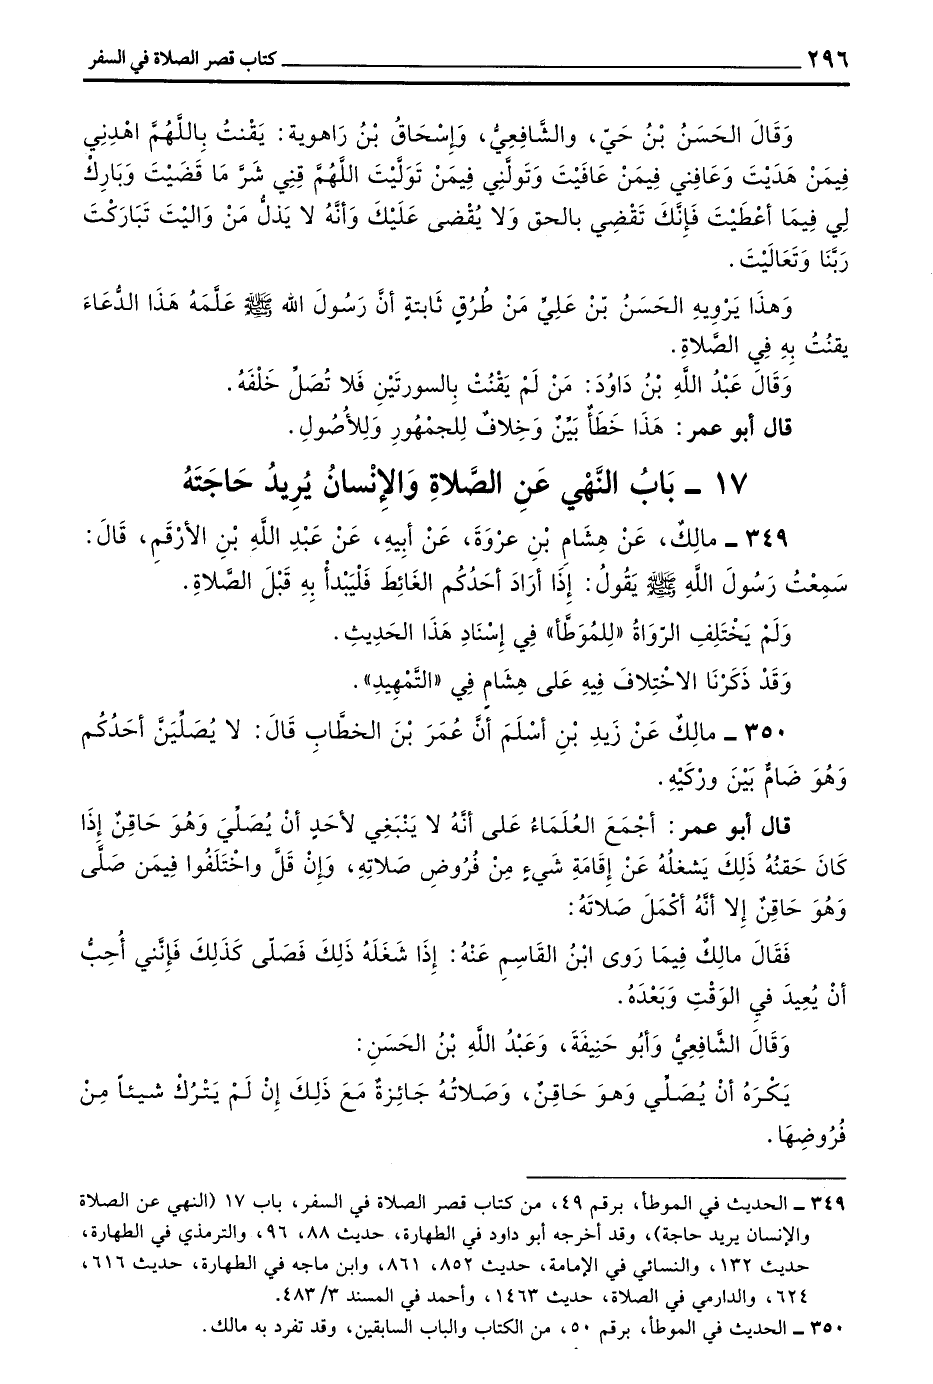 ٢٩٦ كتاب قصر الصلاة في السفر
وَقَالَ الحَسَنُ بْنُ حَيّ، والشَّافِعِيُّ، وَإِسْحَاقُ بْنُ رَاهوية: يَقْنتُ بِاللَّهُمَّ اهْدِنِي
فِيمَنْ هَدَيْتَ وَعَافِنِي فِيمَنْ عَافَيْتَ وَتَولَّنِي فِيمَنْ تَوَلَّيْتَ اللَّهُمَّ قِنِي شَرَّ مَا قَضَيْتَ وَبَارِكْ
لِي فِيمَا أعْطَيْتَ فَإِنَّكَ تَقْضِي بالحق وَلا يُقْضى عَلَيْكَ وَأنَّهُ لا يَذلُّ مَنْ وَاليْتَ تَبَارَكْتَ
رَبَّنَا وَتَعَالَيْتَ.
وَهذَا يَرْوِيهِ الحَسَنُ بْنُ عَلِيٍّ مَنْ طُرُقٍ ثَابتةٍ أنَّ رَسُولَ الله ﷺ عَلَّمَهُ هَذَا الدُّعَاءَ
يقنُتُ بِهِ فِي الصَّلاةِ.
وَقَالَ عَبْدُ اللَّهِ بْنُ دَاوُدَ: مَنْ لَمْ يَقْنُتْ بِالسورتَيْنِ فَلا تُصَلِّ خَلْفَهُ.
قال أبو عمر: هَذَا خَطَأٌ بَيِّنٌ وَخِلافٌ لِلجمْهُورِ وَلِلأُصُولِ.
١٧ - بَابُ النَّهْي عَنِ الصَّلاةِ وَالإِنْسانُ يُرِيدُ حَاجَتَهُ
٣٤٩ - مالِكٌ، عَنْ هِشَامِ بْنِ عرْوَةَ، عَنْ أبِيهِ، عَنْ عَبْدِ اللَّهِ بْنِ الأرْقَمِ، قَالَ:
سَمِعْتُ رَسُولَ اللَّهِ ﷺ يَقُولُ: إِذَا أرَادَ أحَدُكُم الغَائِطَ فَلْيَبْدأْ بِهِ قَبْلَ الصَّلاةِ.
وَلَمْ يَخْتَلِفِ الرّوَاةُ «لِلمُوَطَّأ» فِي إِسْنَادِ هَذَا الحَدِيثِ.
وَقَدْ ذَكَرْنَا الاخْتِلافَ فِيهِ عَلى هِشَامٍ فِي «التَّمْهِيدِ».
٣٥٠ - مالِكٌ عَنْ زَيدِ بْنِ أسْلَمَ أنَّ عُمَرَ بْنَ الخطَّابِ قَالَ: لا يُصَلِّيَنَّ أحَدُكُم
وَهُوَ ضَامٌّ بَيْنَ ورْكَيْهِ.
قال أبو عمر: أجْمَعَ العُلَمَاءُ عَلى أنَّهُ لا يَنْبَغِي لأحَدٍ أنْ يُصَلِّيَ وَهُوَ حَاقِنٌ إِذَا
كَانَ حَقنُهُ ذَلِكَ يَشغلُهُ عَنْ إِقَامَةِ شَيءٍ مِنْ فُرُوضِ صَلاتِهِ، وَإِنْ قَلَّ واخْتَلَفُوا فِيمَن صَلَّى
وَهُوَ حَاقِنٌ إلا أنَّهُ أكْمَلَ صَلاتَهُ:
فَقَالَ مالِكٌ فِيمَا رَوى ابْنُ القَاسِمِ عَنْهُ: إِذَا شَغَلَهُ ذَلِكَ فَصَلّى كَذَلِكَ فَإِنَّني أُحِبُّ
أنْ يُعِيدَ في الوَقْتِ وَبَعْدَهُ.
وَقَالَ الشَّافِعِيُّ وَأبُو حَنِيفَةَ، وَعَبْدُ اللَّهِ بْنُ الحَسَنِ:
يَكْرَهُ أنْ يُصَلِّي وَهوَ حَاقِنٌ، وَصَلاتُهُ جَائِزةٌ مَعَ ذَلِكَ إِنْ لَمْ يَتْرُكْ شيئاً مِنْ
فُرُوضِهَا.
٣٤٩ - الحديث في الموطأ، برقم ٤٩، من كتاب قصر الصلاة في السفر، باب ١٧ (النهي عن الصلاة
والإنسان يريد حاجة)، وقد أخرجه أبو داود في الطهارة، حديث ٨٨، ٩٦، والترمذي في الطهارة،
حديث ١٣٢، والنسائي في الإمامة، حديث ٨٥٢، ٨٦١، وابن ماجه في الطهارة، حديث ٦١٦،
٦٢٤، والدارمي في الصلاة، حديث ١٤٦٣، وأحمد في المسند ٣/ ٤٨٣.
٣٥٠ - الحديث في الموطأ، برقم ٥٠، من الكتاب والباب السابقين، وقد تفرد به مالك.